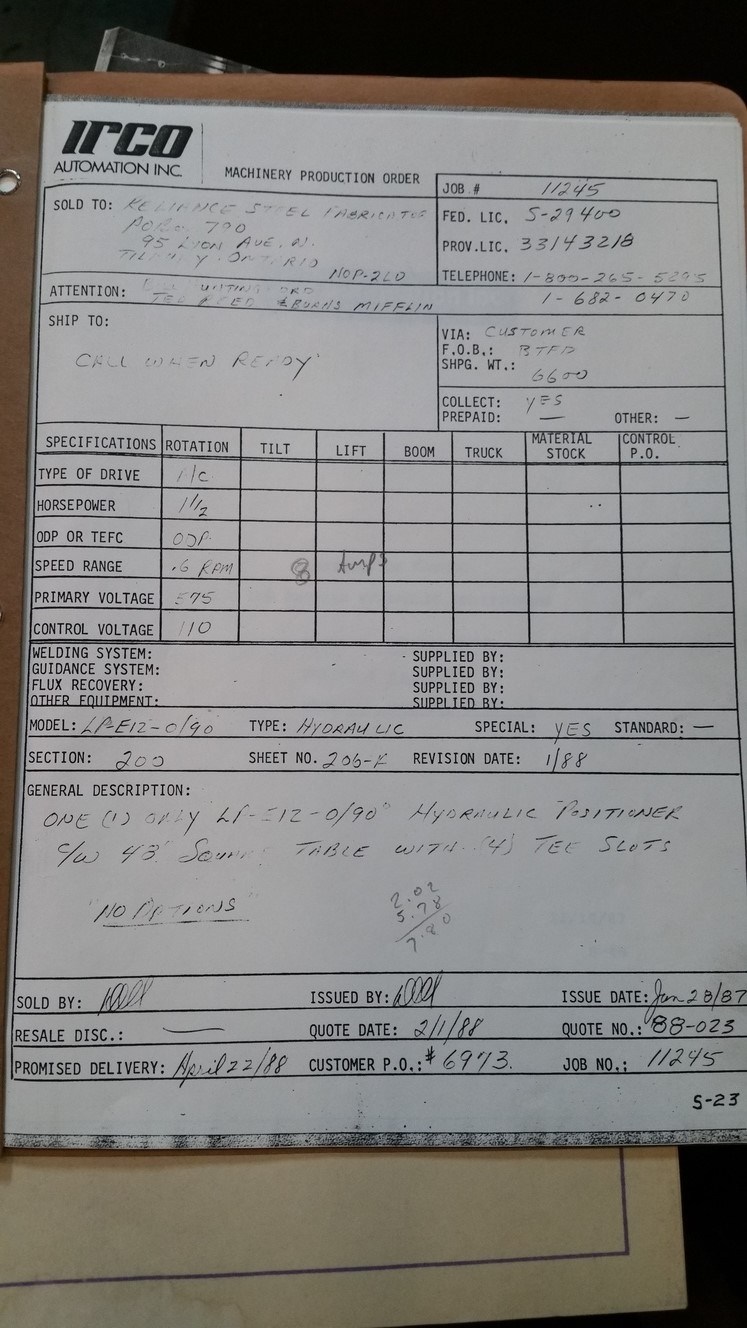 IRCO
AUTOMATION INC.
MACHINERY PRODUCTION ORDER
JOB # 11245
SOLD TO: RELIANCE STEEL FABRICATOR
FED. LIC. S-29400
790
95 LYON AVE. N.
PROV.LIC. 33143218
TILBURY ONTARIO
NOP-2LO
TELEPHONE: 1-800-265-5295
ATTENTION:
1-682-0470
TED REED & BURNS MIFFLIN
SHIP TO:
CALL WHEN READY
VIA: CUSTOMER
F.O.B.: BTFD
SHPG. WT.:
6600
COLLECT: YES
PREPAID: — OTHER: —
SPECIFICATIONS ROTATION TILT LIFT BOOM TRUCK MATERIAL STOCK CONTROL P.O.
TYPE OF DRIVE
HORSEPOWER 1 1/2
ODP OR TEFC ODP
SPEED RANGE .6 RPM 8 Amps
PRIMARY VOLTAGE 575
CONTROL VOLTAGE 110
WELDING SYSTEM: SUPPLIED BY:
GUIDANCE SYSTEM: SUPPLIED BY:
FLUX RECOVERY: SUPPLIED BY:
OTHER EQUIPMENT: SUPPLIED BY:
MODEL: LP-E12-0/90 TYPE: HYDRAULIC SPECIAL: YES STANDARD: —
SECTION: 200 SHEET NO. 206-K REVISION DATE: 1/88
GENERAL DESCRIPTION:
ONE (1) ONLY LP-E12-0/90° HYDRAULIC POSITIONER
C/W 43" SQUARE TABLE WITH (4) TEE SLOTS
"NO OPTIONS"
2.02
5.78
7.80
SOLD BY: ISSUED BY: ISSUE DATE: Jan 28/87
RESALE DISC.: — QUOTE DATE: 2/1/88 QUOTE NO.: 88-023
PROMISED DELIVERY: April 22/88 CUSTOMER P.O.: # 6973. JOB NO.: 11245
S-23